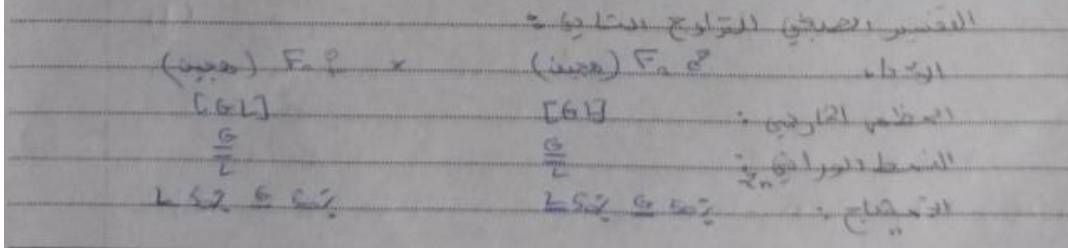 التفسير الصبغي للتزاوج الثاني :
الآباء F₂ ♂ (هجين) × F₂ ♀ (هجين)
المظهر الخارجي : [GL] [GL]
النمط الوراثي 2n : G/L G/L
الأمشاج : L 50% G 50% L 50% G 50%